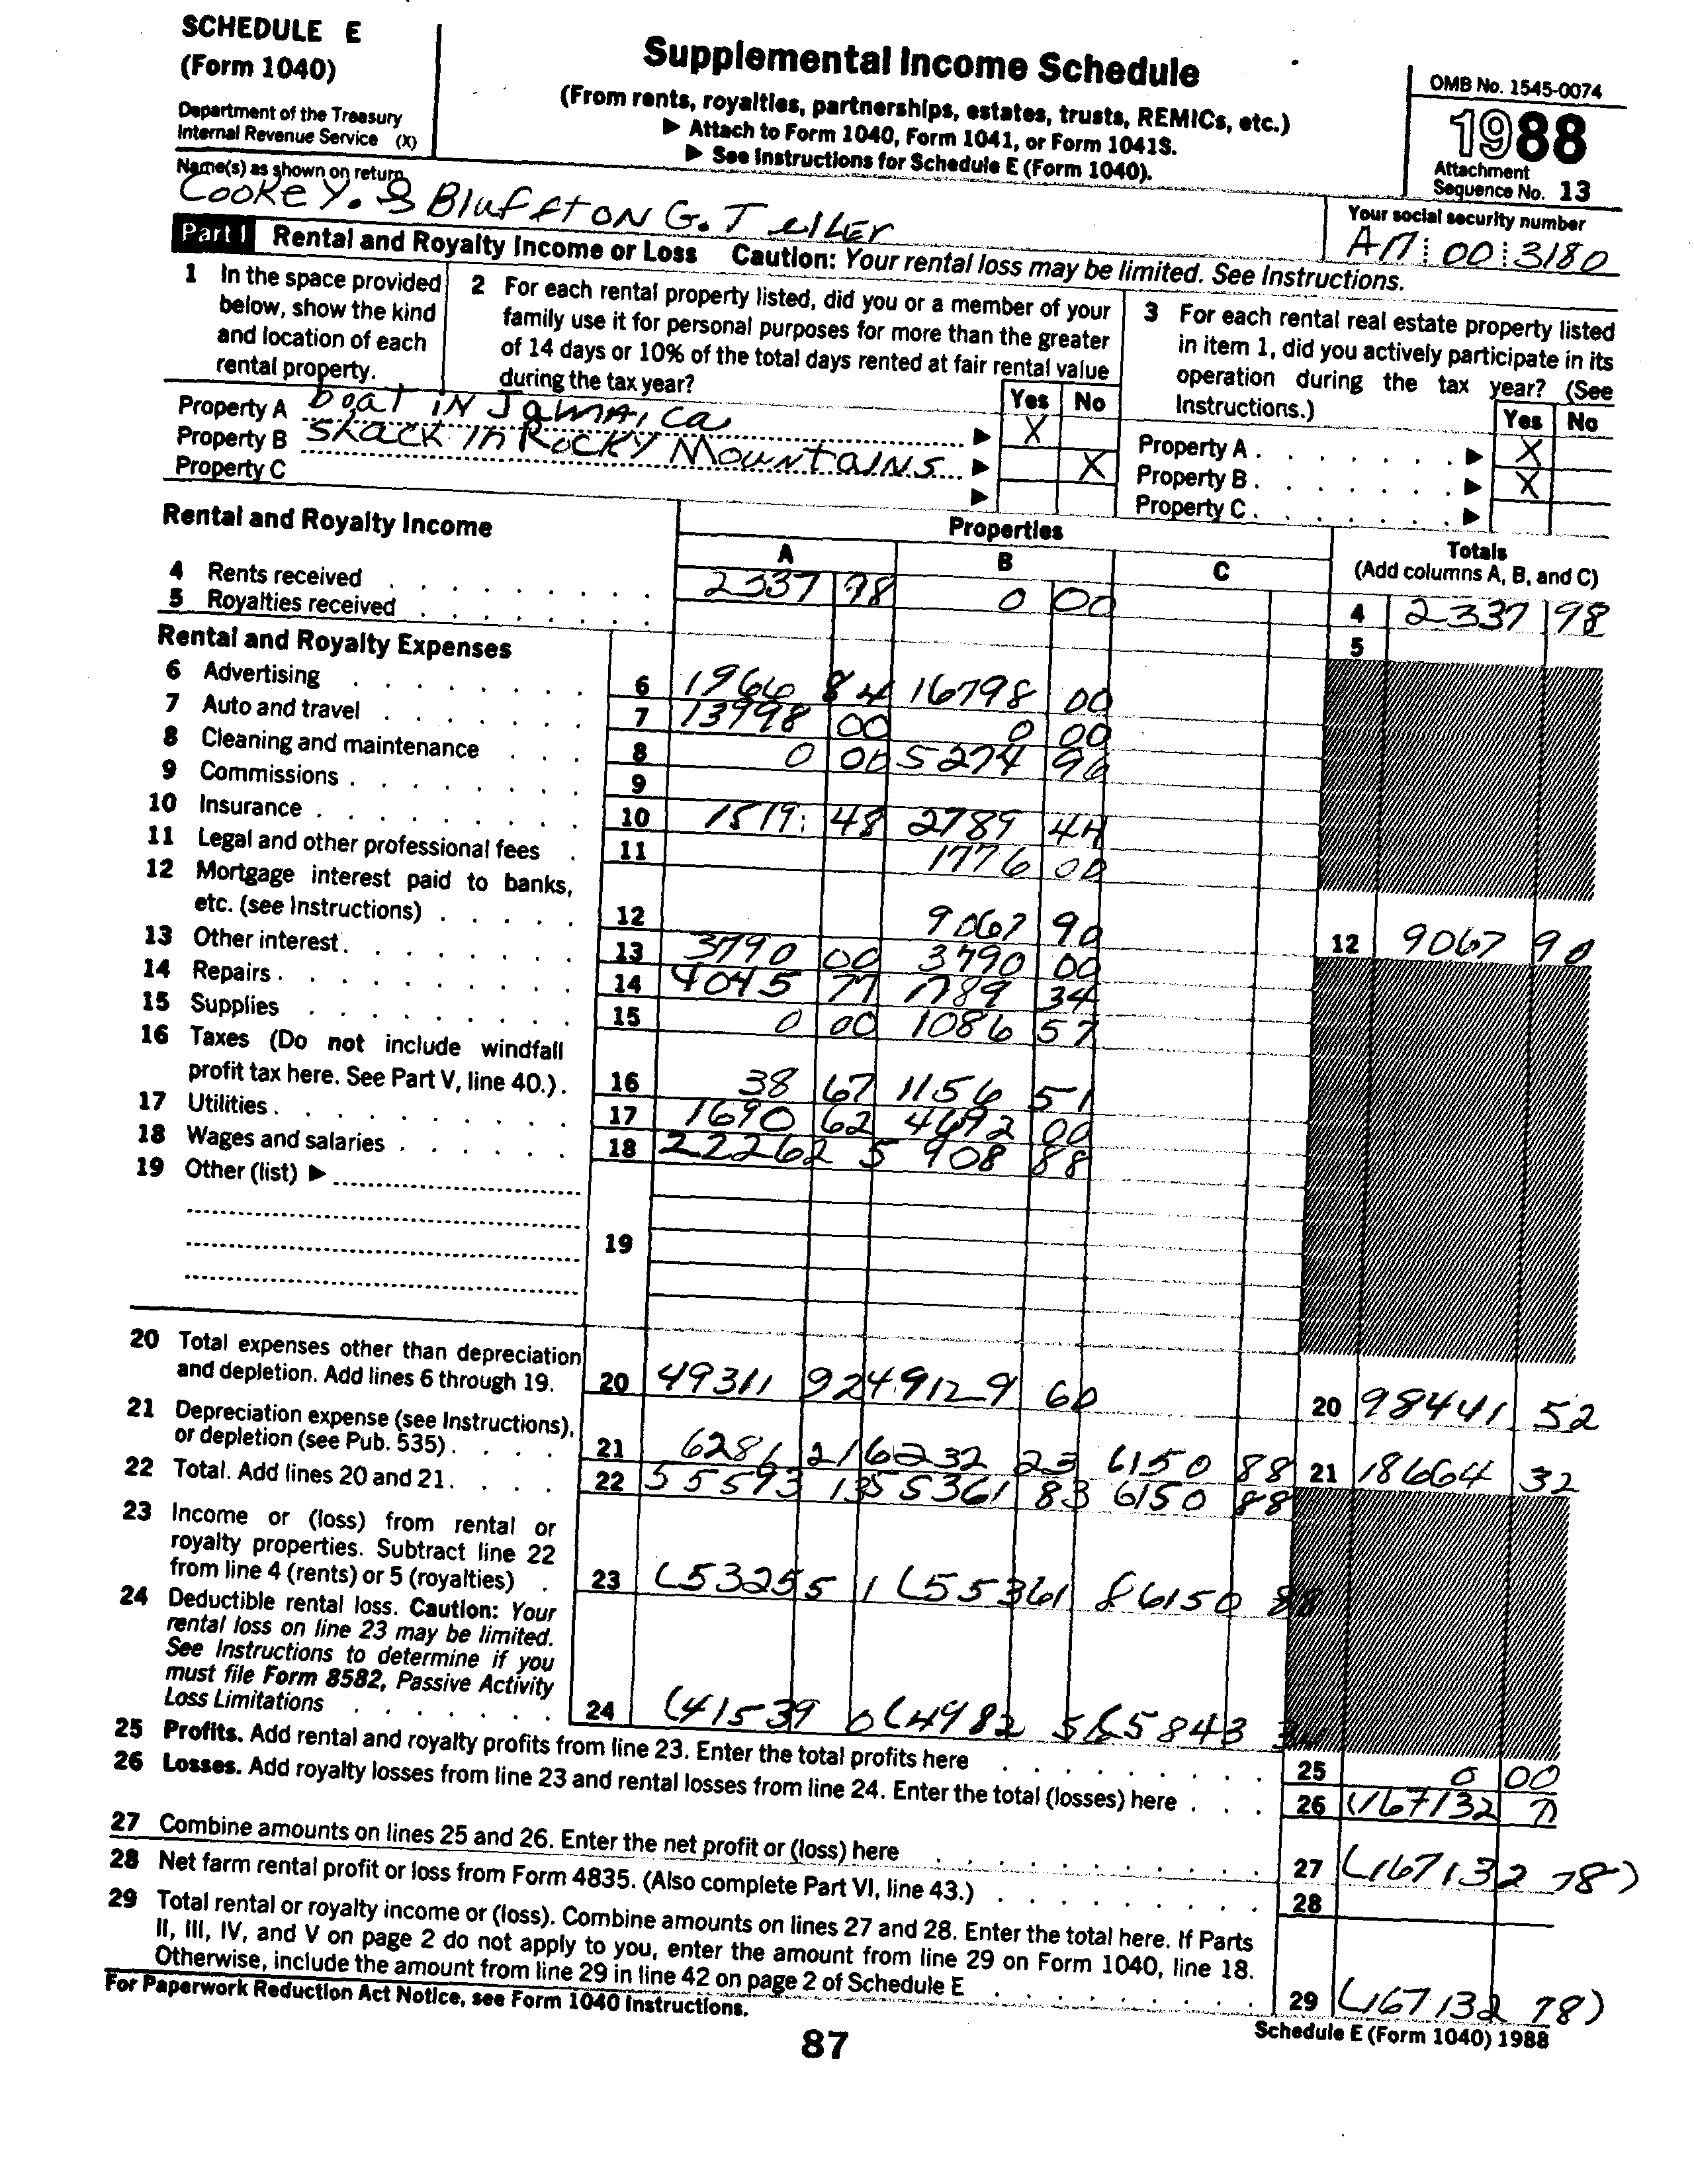 SCHEDULE E
(Form 1040)
Department of the Treasury
Internal Revenue Service (X)
Supplemental Income Schedule
(From rents, royalties, partnerships, estates, trusts, REMICs, etc.)
▶ Attach to Form 1040, Form 1041, or Form 1041S.
▶ See Instructions for Schedule E (Form 1040).
OMB No. 1545-0074
1988
Attachment
Sequence No. 13
Name(s) as shown on return
Cooke Y. & Bluffton G. Teller
Your social security number
00 3180
Part I Rental and Royalty Income or Loss Caution: Your rental loss may be limited. See Instructions.
1 In the space provided below, show the kind and location of each rental property.
2 For each rental property listed, did you or a member of your family use it for personal purposes for more than the greater of 14 days or 10% of the total days rented at fair rental value during the tax year?
3 For each rental real estate property listed in item 1, did you actively participate in its operation during the tax year? (See Instructions.)
Yes No
Yes No
Property A boat in Jamaica ▶ X
Property B shack in Rocky Mountains ▶ X
Property C ▶
Property A ▶ X
Property B ▶ X
Property C ▶
Rental and Royalty Income
Properties
A B C
Totals
(Add columns A, B, and C)
4 Rents received 2337 98 0 00 4 2337 98
5 Royalties received 5
Rental and Royalty Expenses
6 Advertising 6 1966 84 16798 00
7 Auto and travel 7 13998 00 0 00
8 Cleaning and maintenance 8 0 00 5274 96
9 Commissions 9
10 Insurance 10 1519 48 2789 44
11 Legal and other professional fees 11 1776 00
12 Mortgage interest paid to banks, etc. (see Instructions) 12 9067 90 12 9067 90
13 Other interest 13 3790 00 3790 00
14 Repairs 14 4045 77 1789 34
15 Supplies 15 0 00 1086 57
16 Taxes (Do not include windfall profit tax here. See Part V, line 40.) 16 38 67 1156 51
17 Utilities 17 1690 62 4692 00
18 Wages and salaries 18 22262 5 908 88
19 Other (list) ▶
19
20 Total expenses other than depreciation and depletion. Add lines 6 through 19. 20 49311 92 49129 60 20 98441 52
21 Depreciation expense (see Instructions), or depletion (see Pub. 535) 21 6281 21 6232 23 6150 88 21 18664 32
22 Total. Add lines 20 and 21 22 55593 13 55361 83 6150 88
23 Income or (loss) from rental or royalty properties. Subtract line 22 from line 4 (rents) or 5 (royalties) 23 (53255 1 (55361 8 6150 88
24 Deductible rental loss. Caution: Your rental loss on line 23 may be limited. See Instructions to determine if you must file Form 8582, Passive Activity Loss Limitations 24 (41539 0 (4982 5 (5843
25 Profits. Add rental and royalty profits from line 23. Enter the total profits here 25 0 00
26 Losses. Add royalty losses from line 23 and rental losses from line 24. Enter the total (losses) here 26 (167132 7
27 Combine amounts on lines 25 and 26. Enter the net profit or (loss) here 27 (167132 78)
28 Net farm rental profit or loss from Form 4835. (Also complete Part VI, line 43.) 28
29 Total rental or royalty income or (loss). Combine amounts on lines 27 and 28. Enter the total here. If Parts II, III, IV, and V on page 2 do not apply to you, enter the amount from line 29 on Form 1040, line 18. Otherwise, include the amount from line 29 in line 42 on page 2 of Schedule E 29 (167132 78)
For Paperwork Reduction Act Notice, see Form 1040 Instructions.
Schedule E (Form 1040) 1988
87